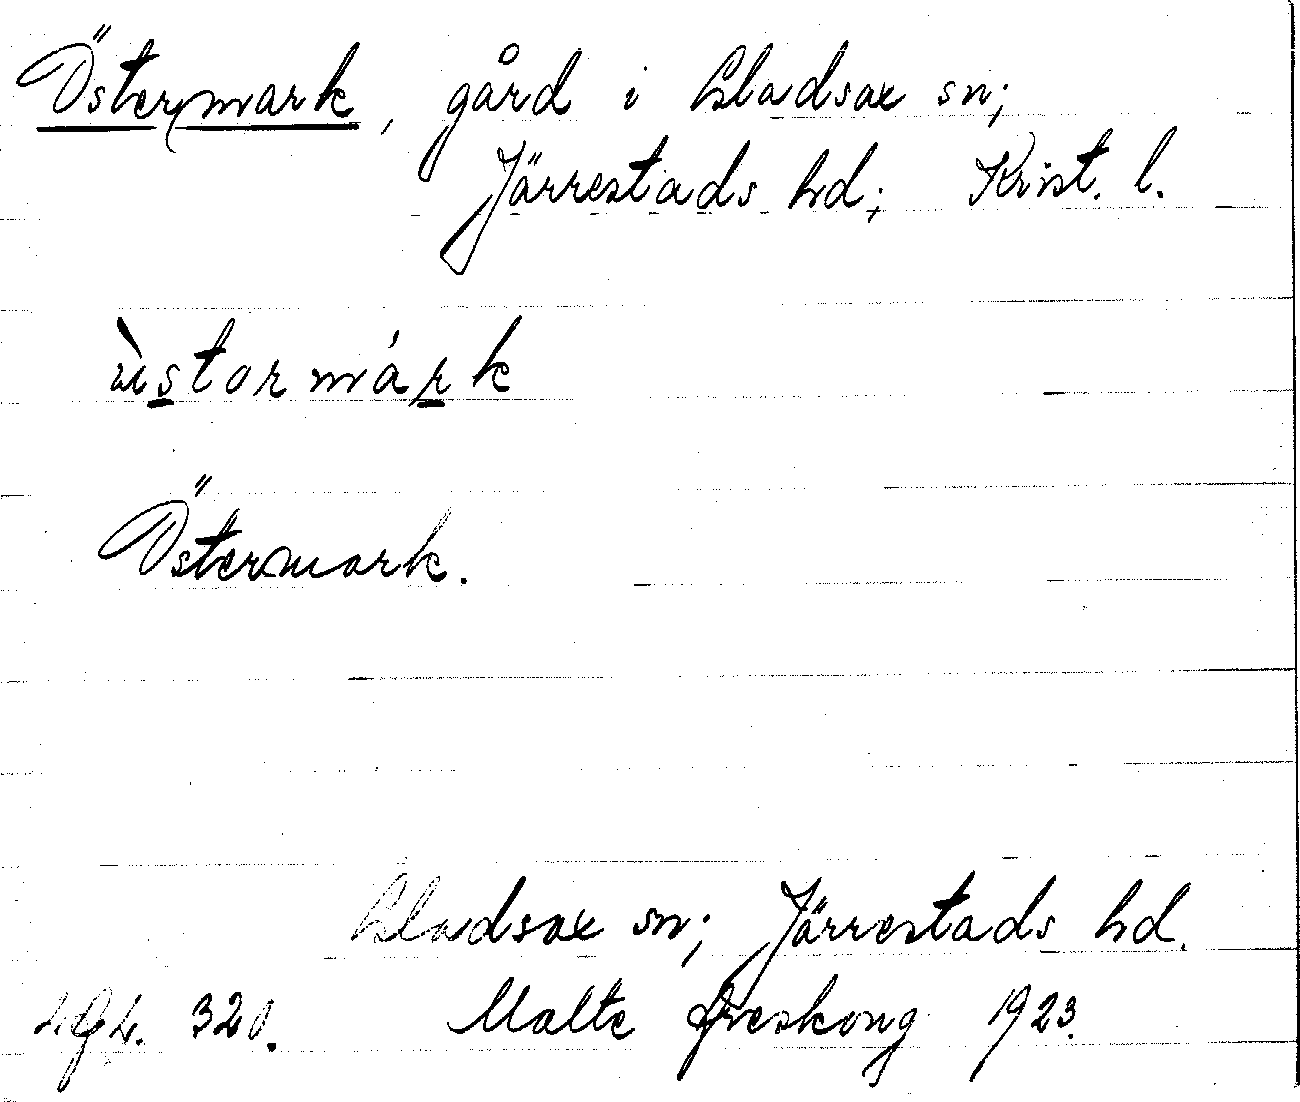 Östermark, gård i Gladsax sn;
Järrestads hd; Krist. l.
ùstormárk
Östermark.
Gladsax sn; Järrestads hd.
320. Malte Areskoug 1923.